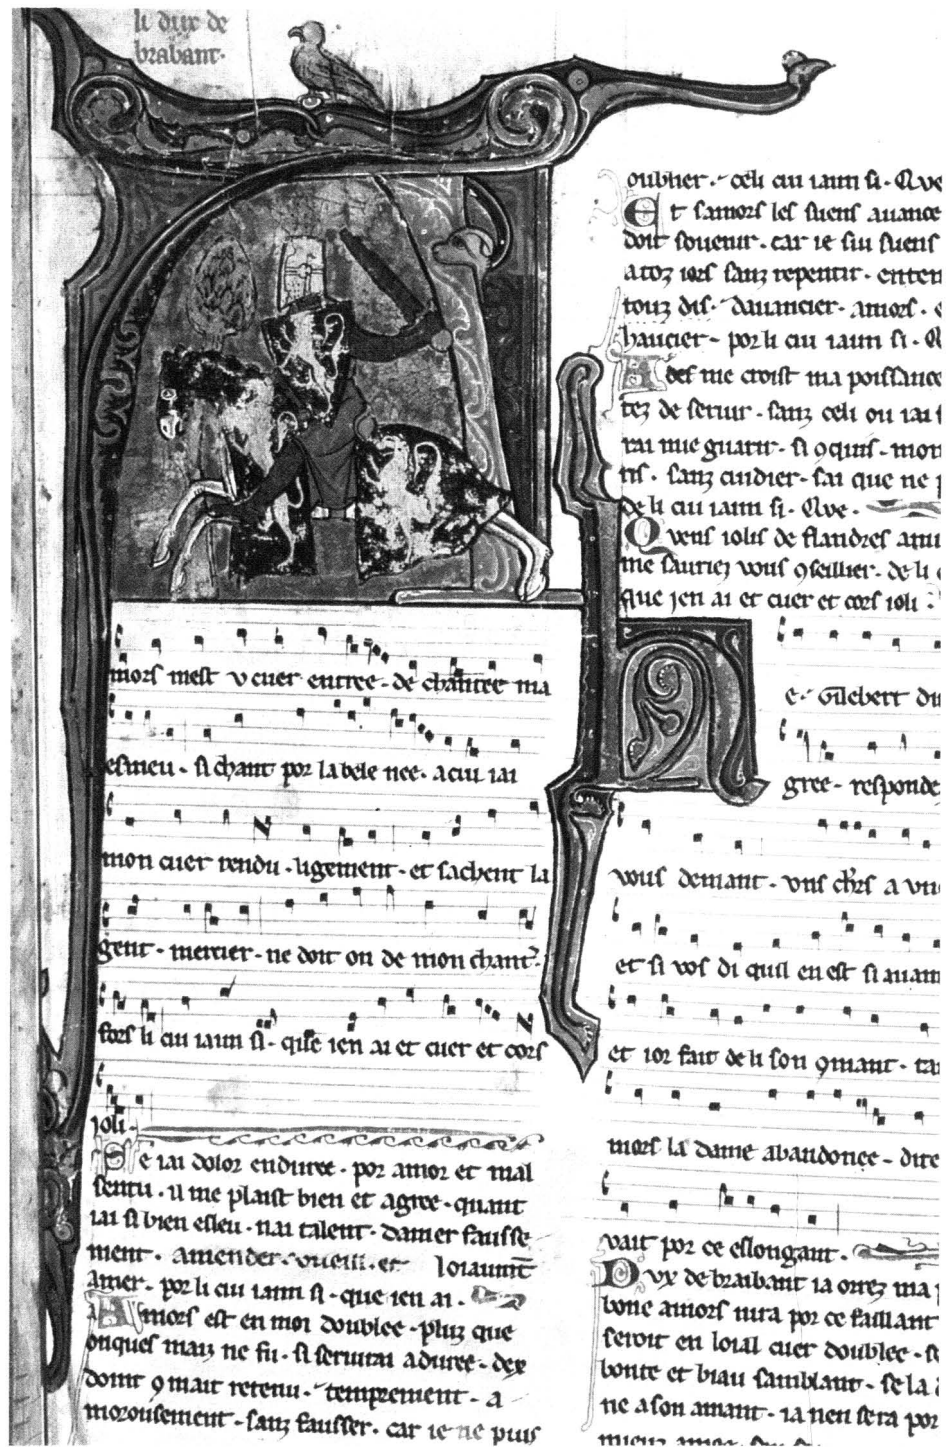 li dux de
brabant·
mors mest v cuer entree · de chantee ma
esmeu · si chant por la bele nee · a cui iai
mon cuer rendu · ligement · et sachent la
gent · mercier · ne doit on de mon chant·
fors li cui iaim si · qise ien ai et cuer et cors
ioli·
Se iai dolor enduree · por amor et mal
sentu · il me plaist bien et agree · quant
iai si bien esleu · nai talent · damer fausse
ment · amender · vueill · et loiaument
amer · por li cui iaim si · que ien ai ·
Amors est en moi doublee · pluz que
onques maiz ne fu · si seruirai aduree · dex
doint 9mait retenu · temprement · a
morousement · sanz fausser · car ie ne puis
oublier · celi cui iaim si · Que
Et samors les suens auance
doit souenir · car ie sui suens
a toz iors sanz repentir · enten
touz dis · dauancier · amors ·
haucier · por li cui iaim si · Q
Ades me croist ma poissance
tez de seruir · sanz celi ou iai
rai mie guarir · si 9quis · mon
tis · sanz cuidier · sai que ne p
de li cui iaim si · Que ·
Qvens iolis de flandres ami
me sauriez vous 9seillier · de li
que ien ai et cuer et cors ioli :
e · Guilebert du
gree · responde
vous demant · vns chrs a vn
et si vos di quil en est si auan
et ior fait de li son 9mant · ta
mors la dame abandonee · dite
vait por ce eslongant ·
Dvx de braibant ia orrez ma
bone amors nira por ce faillant
seroit en loial cuer doublee · se
bonte et biau samblant · se la
ne a son amant · ia nen sera por